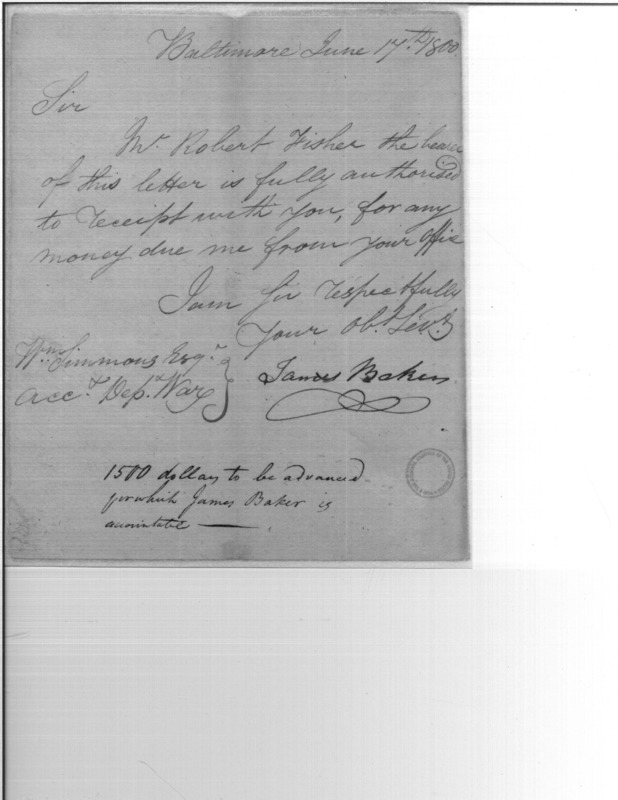 Baltimore June 17th. 1800.
Sir
Mr. Robert Fisher the bearer
of this letter is fully authorised
to receipt with you, for any
money due me from your office
I am Sir respectfully
Your Obt. Servt.
Wm. Simmons Esqr.
Acct. Dept. War
James Baker
1500 dollars to be advanced
for which James Baker is
accountable